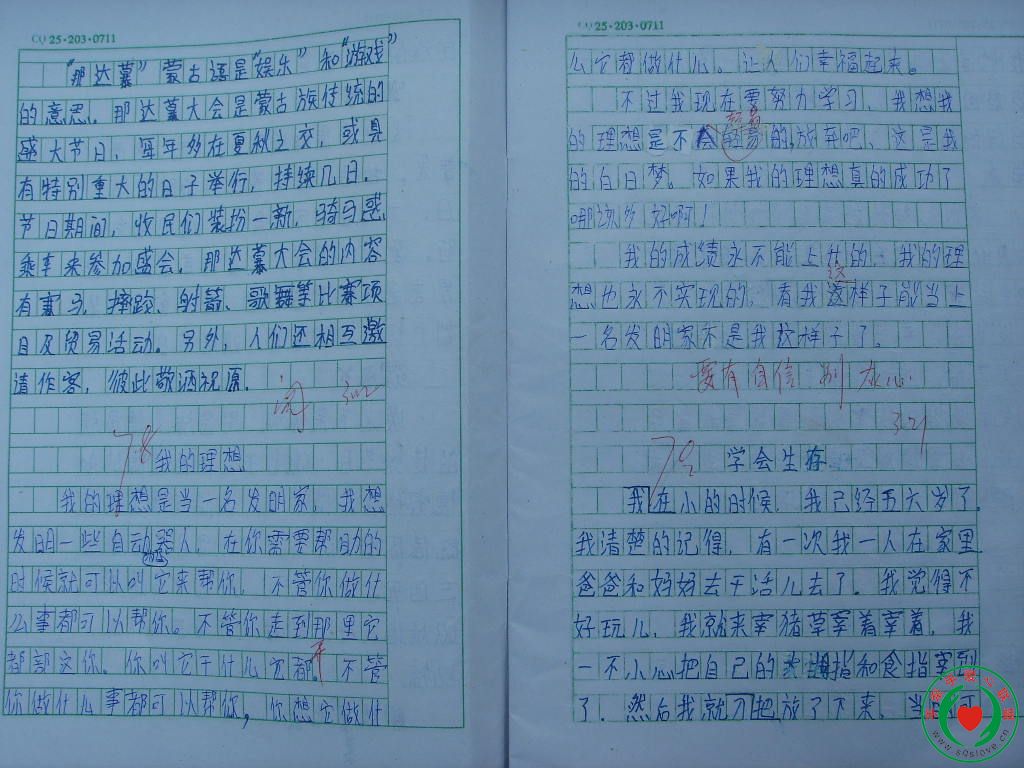 CQ 25·203·0711
"那达慕" 蒙古语是"娱乐" 和"游戏"
的意思。那达慕大会是蒙古族传统的
盛大节日，每年多在夏秋之交，或具
有特别重大的日子举行，持续几日。
节日期间，收民们装扮一新，骑马或
乘车来参加盛会。那达慕大会的内容
有赛马、摔跤、射箭、歌舞等比赛项
目及贸易活动。另外，人们还相互邀
请作客，彼此敬酒祝愿。
阅
78
我的理想
我的理想是当一名发明家。我想
发明一些自动器人，在你需要帮助的
时候就可以叫它来帮你，不管你做什
么事都可以帮你。不管你走到那里它
都 你。你叫它干什么它都干。不管
你做什么事都可以帮你，你想它做什
CQ 25·203·0711
么它都做什么。让人们幸福起来。
不过我现在要努力学习，我想我
轻易
的理想是不会轻易的放弃吧，这是我
的白日梦。如果我的理想真的成功了
哪该多好啊！
我的成绩永不能上 的，我的理
这
想也永不实现的，看我这样子能当上
一名发明家不是我这样子了。
要有自信 别灰心
3.21
70
学会生存
我在小的时候，我已经五六岁了。
我清楚的记得，有一次我一人在家里
爸爸和妈妈去干活儿去了。我觉得不
好玩儿，我就来宰猪草宰着宰着，我
一不小心把自己的大拇指和食指宰到
了。然后我就刀把放了下来，当时可
www.sqslove.cn